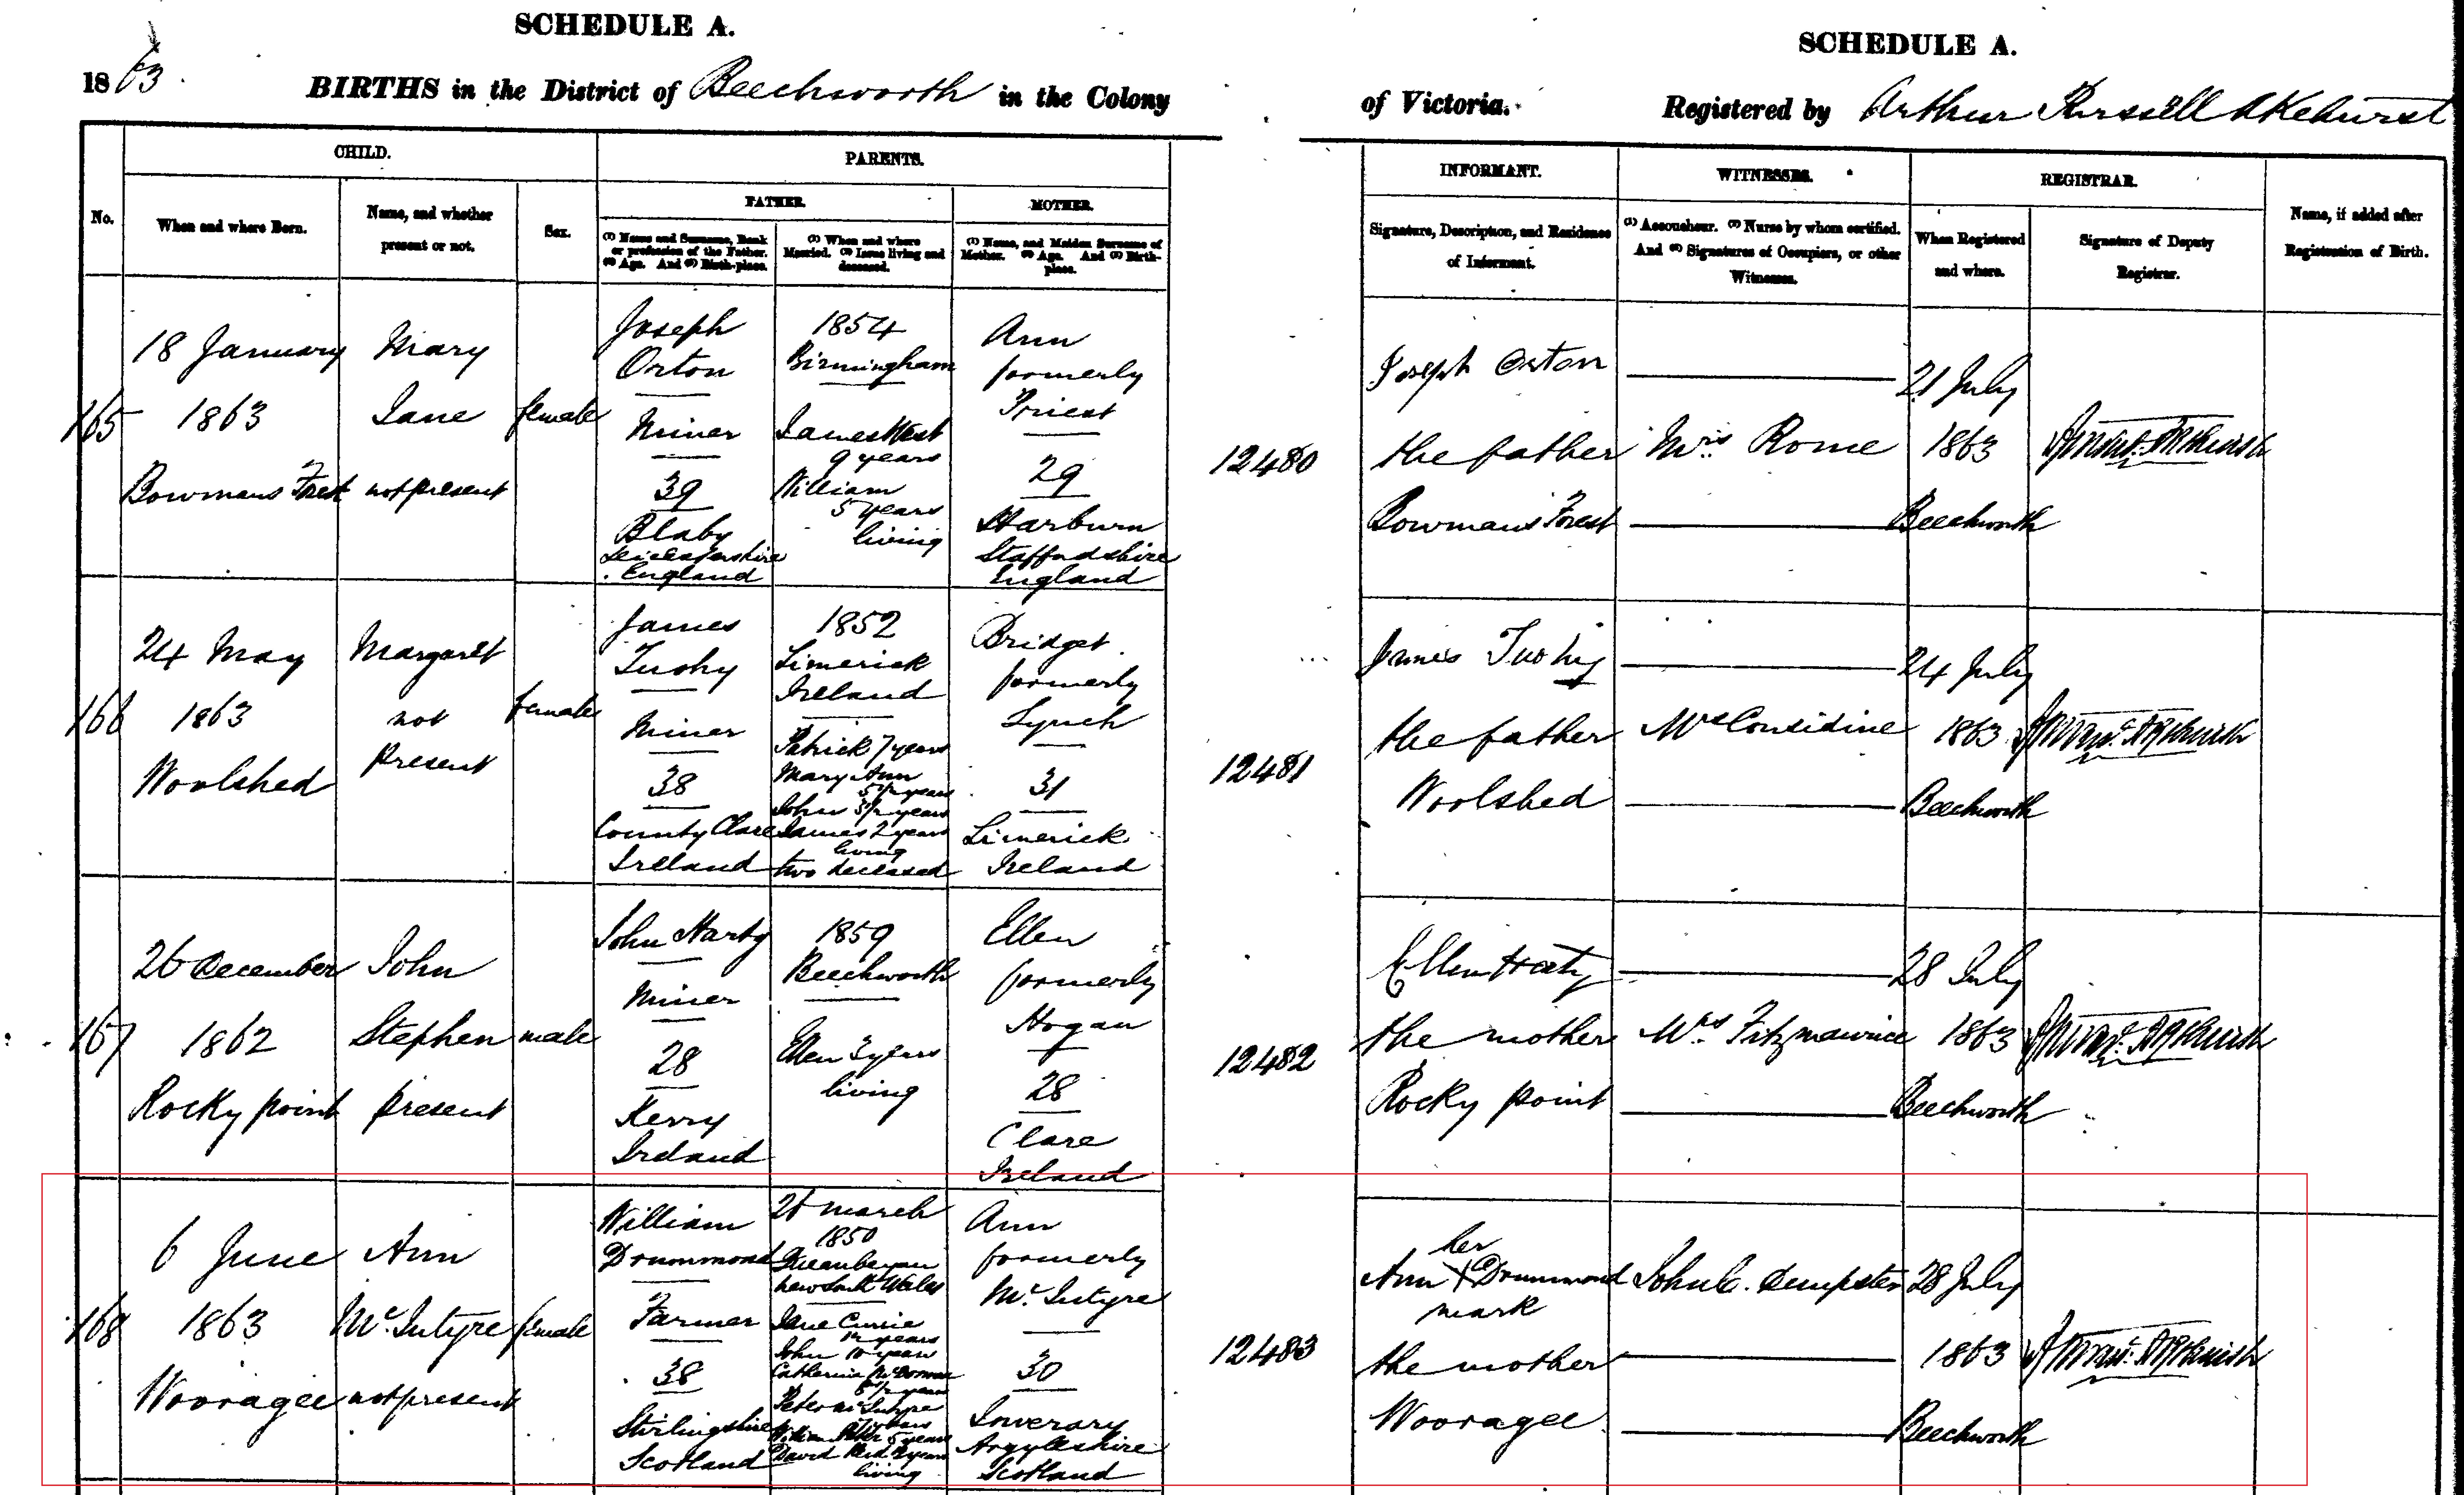 SCHEDULE A.
1863.
BIRTHS in the District of Beechworth in the Colony
SCHEDULE A.
of Victoria. Registered by Arthur Russell Akehurst
No.
CHILD.
When and where Born.
Name, and whether
present or not.
Sex.
PARENTS.
FATHER.
(1) Name and Surname, Rank
or profession of the Father.
(2) Age. And (3) Birth-place.
(1) When and where
Married. (2) Issue living and
deceased.
MOTHER.
(1) Name, and Maiden Surname of
Mother. (2) Age. And (3) Birth-
place.
INFORMANT.
Signature, Description, and Residence
of Informant.
WITNESSES.
(1) Accoucheur. (2) Nurse by whom certified.
And (3) Signatures of Occupiers, or other
Witnesses.
REGISTRAR.
When Registered
and where.
Signature of Deputy
Registrar.
Name, if added after
Registration of Birth.
165
18 January
1863
Bowmans Forest
Mary
Jane
not present
female
Joseph
Orton
Miner
39
Blaby
Leicestershire
England
1854
Birmingham
James West
9 years
William
5 years
living
Ann
formerly
Priest
29
Harburn
Staffordshire
England
12480
Joseph Orton
the father
Bowmans Forest
Mrs. Rome
21 July
1863
Beechworth
166
24 May
1863
Woolshed
Margaret
not
present
female
James
Tuohy
Miner
38
County Clare
Ireland
1852
Limerick
Ireland
Patrick 7 years
Mary Ann
5½ years
John 3½ years
James 2 years
living
two deceased
Bridget
formerly
Lynch
31
Limerick
Ireland
12481
James Tuohy
the father
Woolshed
Mrs Considine
24 July
1863
Beechworth
167
26 December
1862
Rocky point
John
Stephen
present
male
John Harty
Miner
28
Kerry
Ireland
1859
Beechworth
Ellen 3 years
living
Ellen
formerly
Hogan
28
Clare
Ireland
12482
Ellen Harty
the mother
Rocky point
Mrs. Fitzmaurice
28 July
1863
Beechworth
168
6 June
1863
Wooragee
Ann
McIntyre
not present
female
William
Drummond
Farmer
38
Stirlingshire
Scotland
26 March
1850
Queanbeyan
New South Wales
Jane Currie
12 years
John 10 years
Catherine
8½ years
Peter McIntyre
years
William Peter 5 years
David Reid 2 years
living
Ann
formerly
McIntyre
30
Inverary
Argyleshire
Scotland
12483
her
Ann X Drummond
mark
the mother
Wooragee
John C. Dempster
28 July
1863
Beechworth